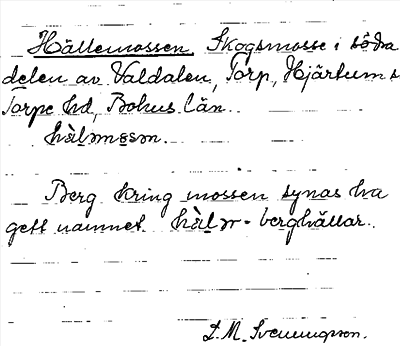 Hällemossen, Skogsmosse i södra
delen av Valdalen, Torp, Hjärtums
Torpe hd, Bohus län.
hàlmåsən.
Berg kring mossen synas ha
gett namnet. hàlər - berghällar.
S. M. Svenungson.